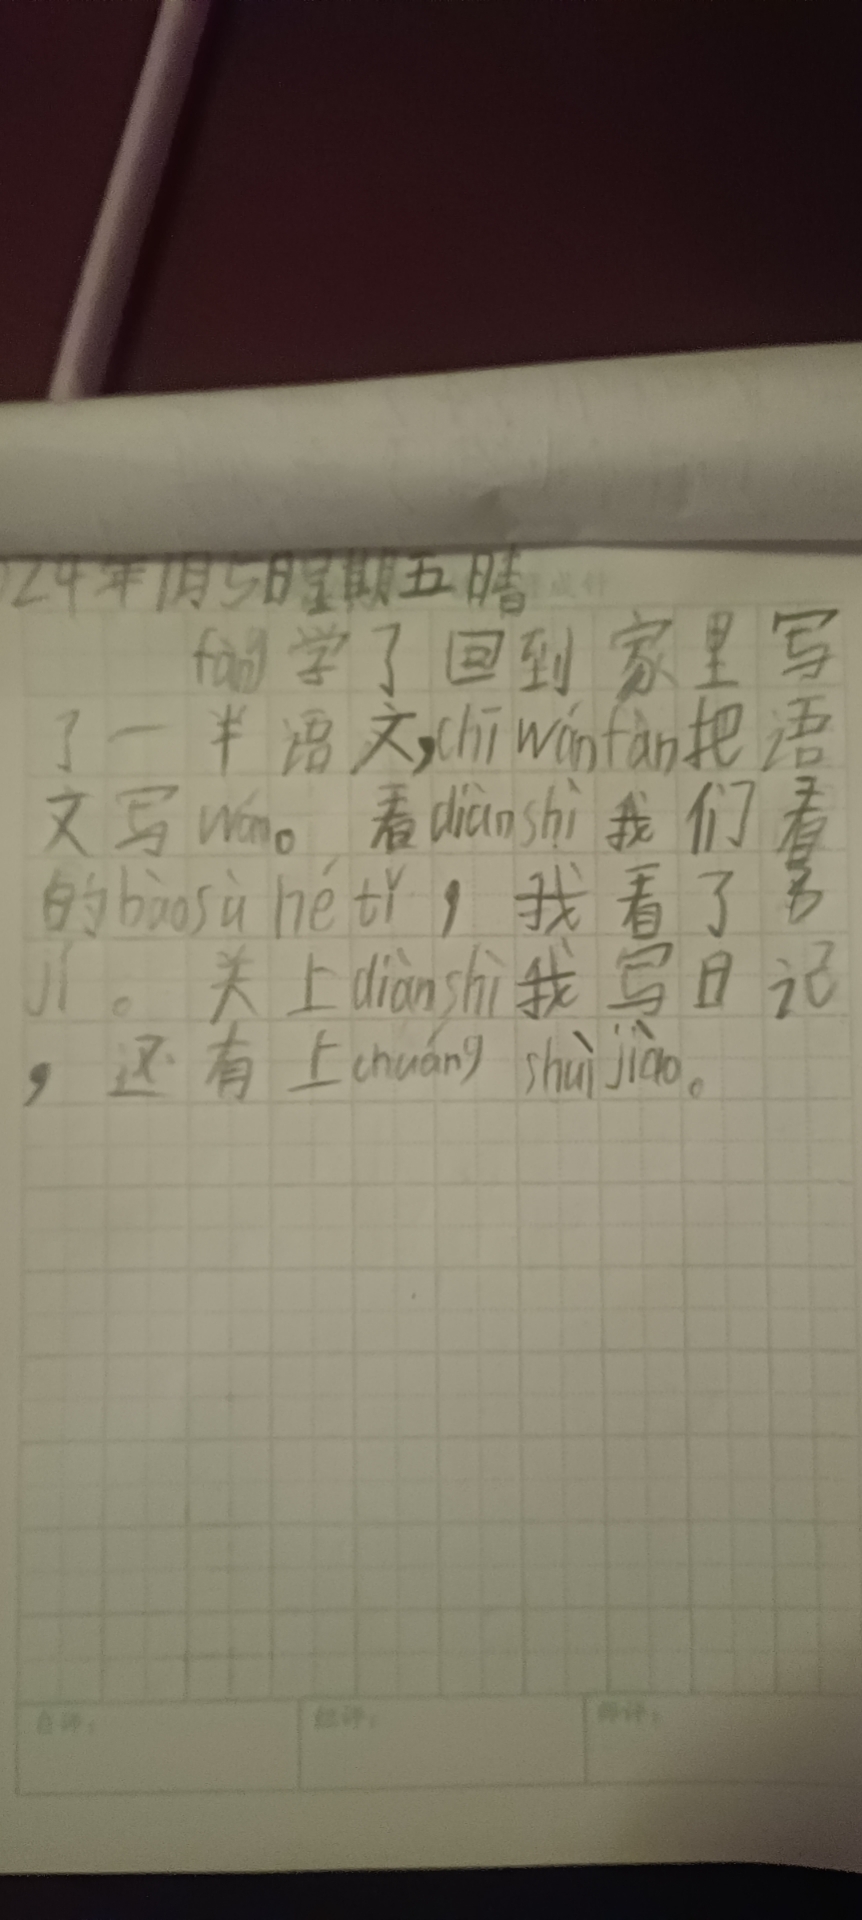 024年1月5日星期五 晴
fàng学了回到家里写
了一半语文,chī wán fàn把语
文写wán。看diàn shì我们看
的bào sù hé tǐ，我看了多
jí。关上diàn shì我写日记
，还有上chuáng shuì jiào。
自评： 组评： 师评：